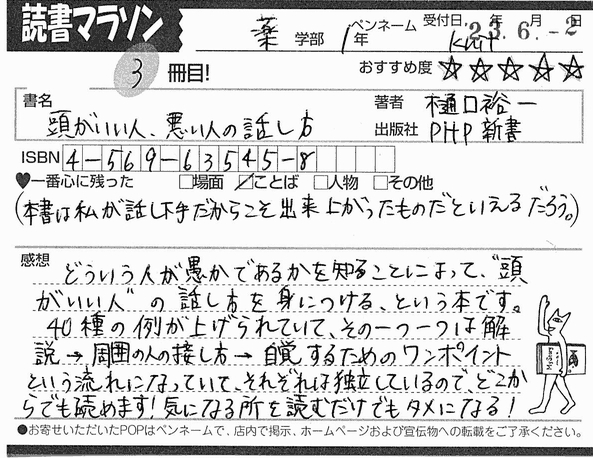 読書マラソン
薬 学部 1年 ペンネーム knit 受付日 '23年 6月 -2日
3 冊目! おすすめ度 ☆☆☆☆☆
書名 頭がいい人、悪い人の話し方
著者 樋口裕一
出版社 PHP新書
ISBN 4-569-63545-8
♥一番心に残った □場面 ☑ことば □人物 □その他
(本書は私が話し下手だからこそ出来上がったものだといえるだろう。)
感想
どういう人が愚かであるかを知ることによって、"頭
がいい人"の話し方を身につける、という本です。
40種の例が上げられていて、その一つ一つは解
説→周囲の人の接し方→自覚するためのワンポイント
という流れになっていて、それぞれは独立しているので、どこか
らでも読めます!気になる所を読むだけでもタメになる!
●お寄せいただいたPOPはペンネームで、店内で掲示、ホームページおよび宣伝物への転載をご了承ください。